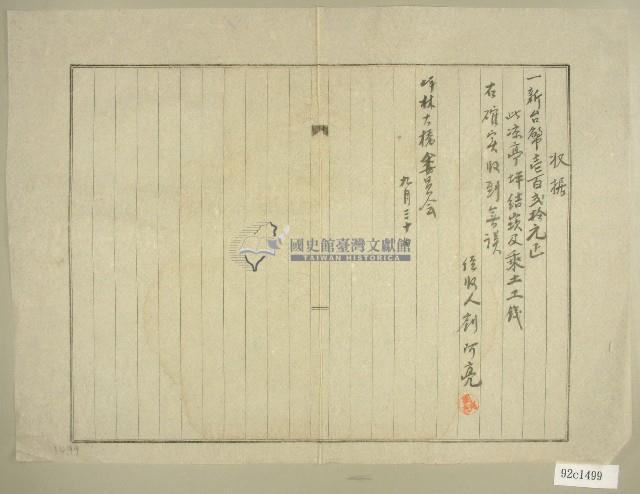 收据
一新台幣壹百弍拾元正
此凉亭坪結崁及乘土工錢
右確实收到無误
經收人 劉阿亮
坪林大橋委員会
九月三十
國史館臺灣文獻館
TAIWAN HISTORICA
1499
92c1499